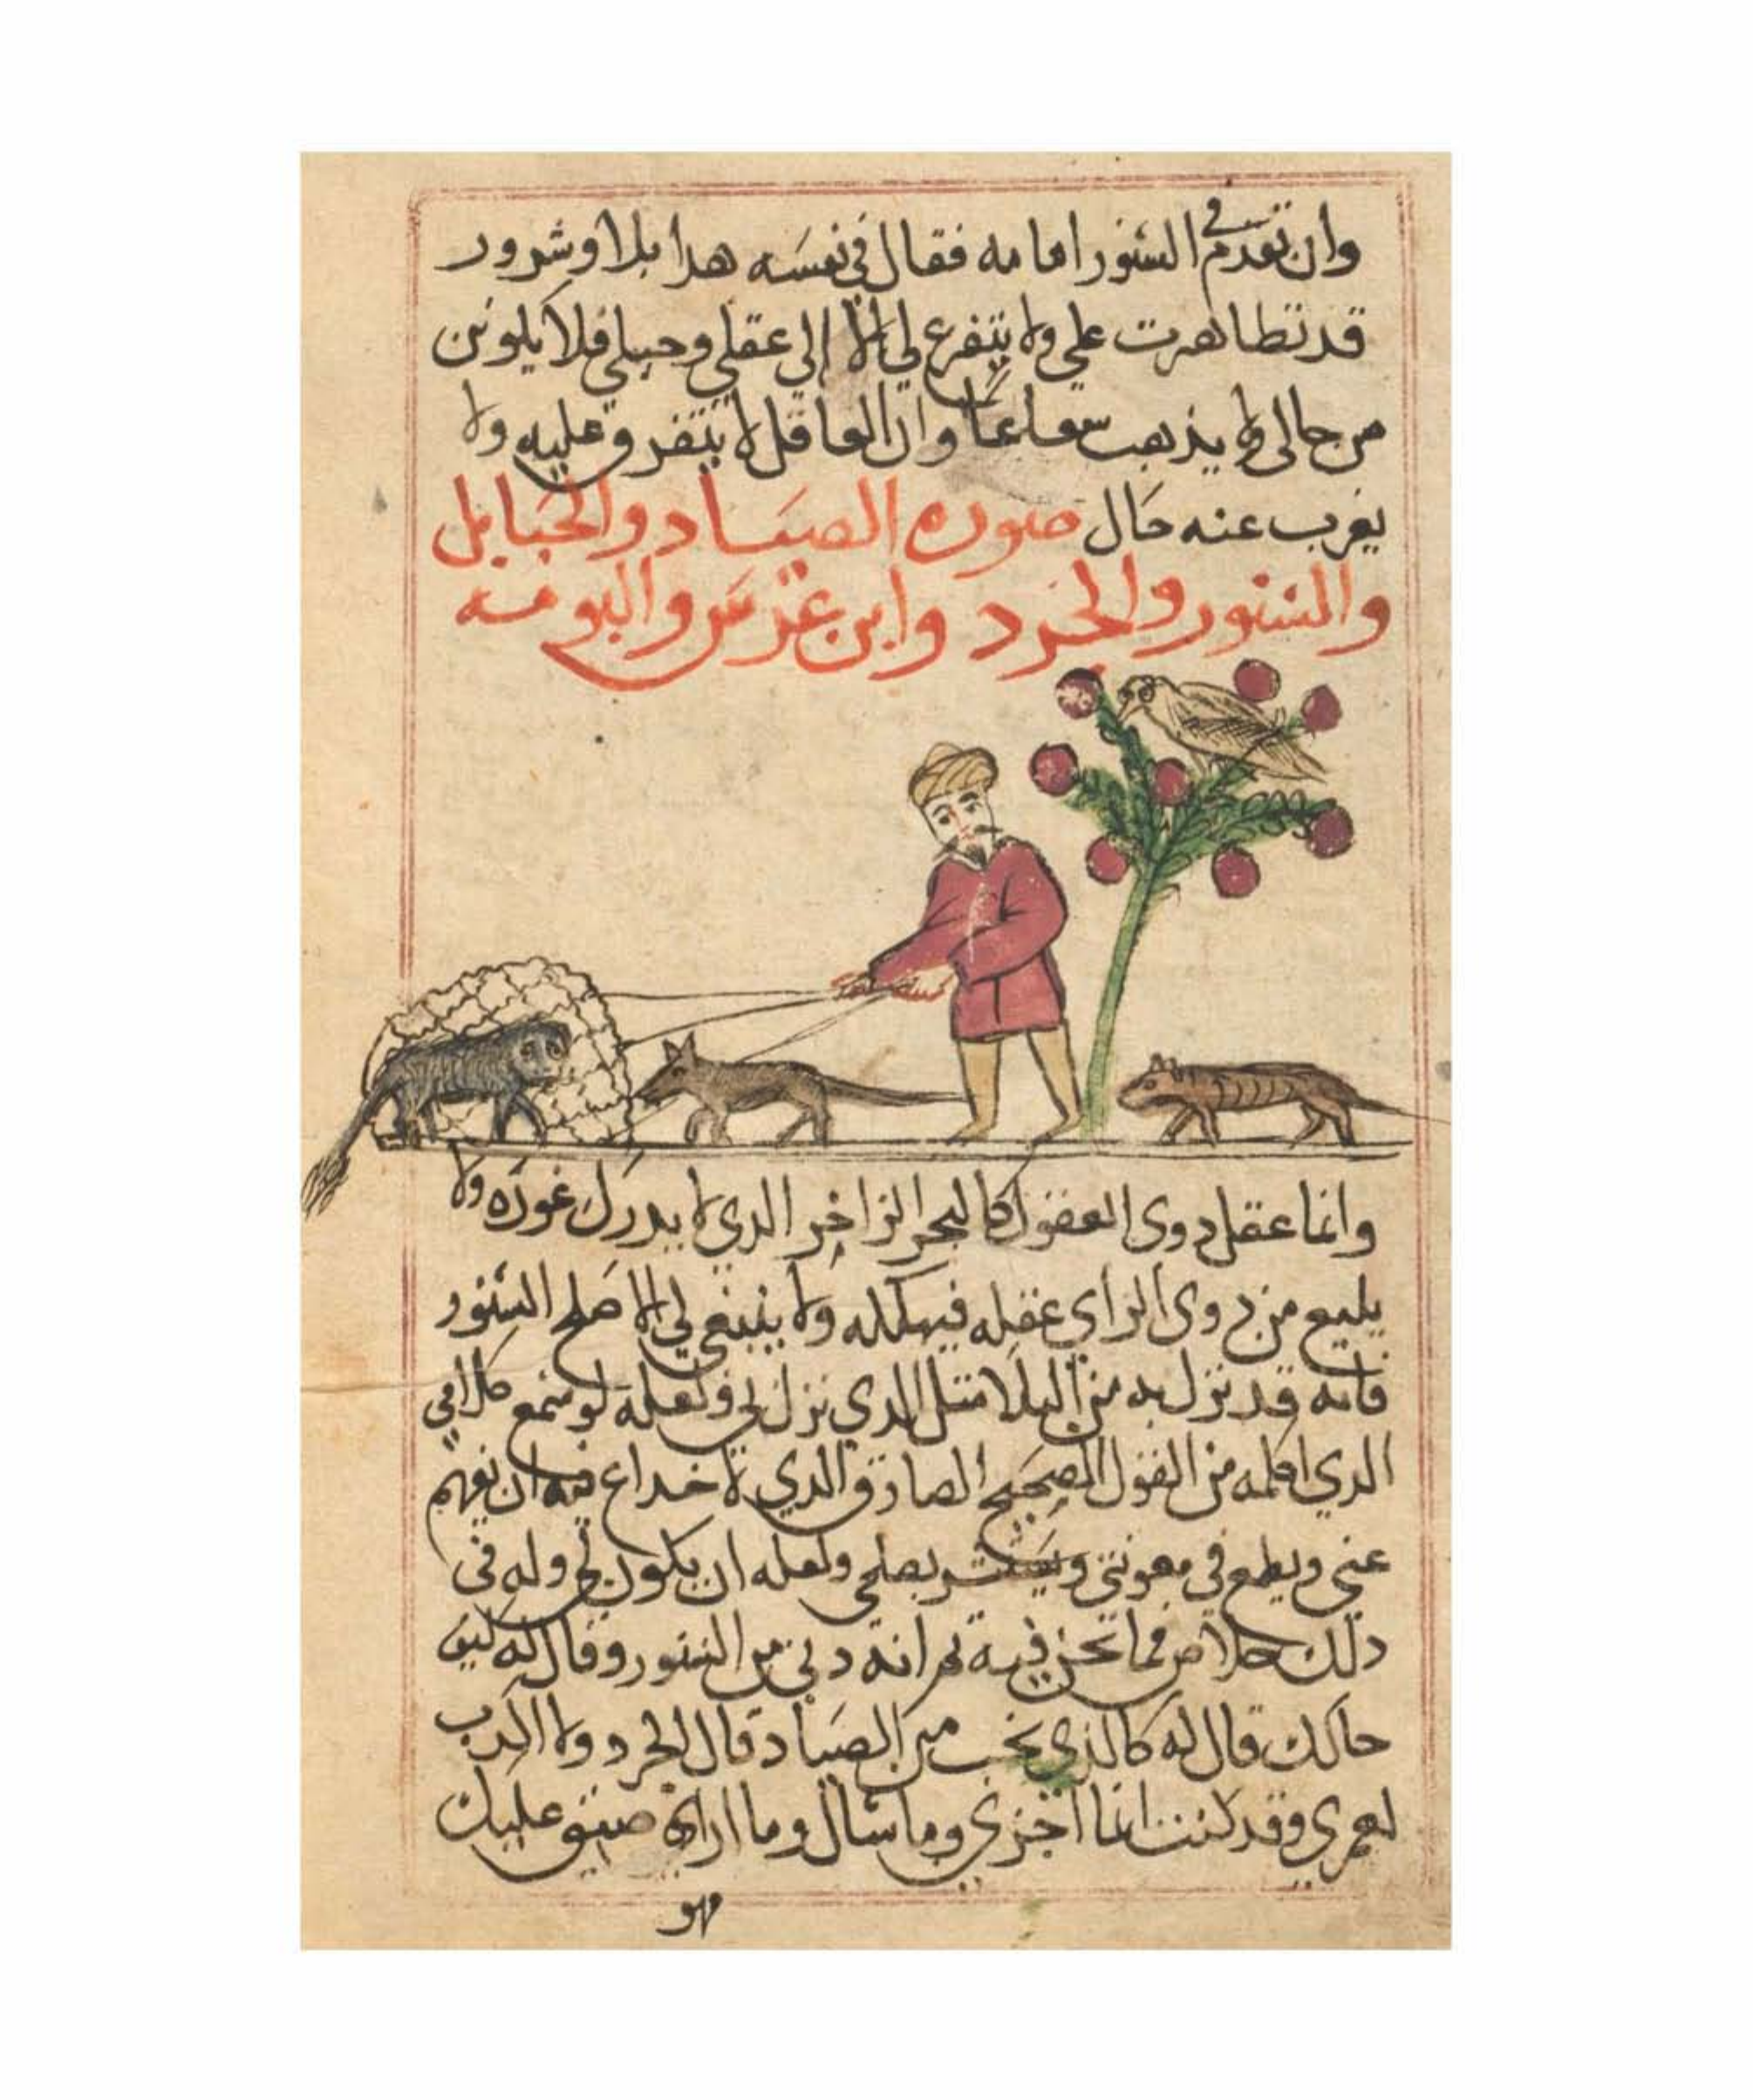 وان تقدم في السنور امامه فقال في نفسه هدا بلا وشرور
قد تظاهرت علي ولا يتفرع لي الا الى عقلي وحيلي فلا يكونن
من حالى ولا يذهب سعاعا وان العاقل لا يتفرق عليه ولا
يغرب عنه حال صوره الصياد والحبايل
والسنور والجرد وابن عرس والبومه
وانما عقل دوى العقول كالبحر الزاخر الدي لا يدرك غوره ولا
يبلغ من دوى الراي عقله فيهلكه ولا ينبغي لي الا صلح السنور
فانه قد نزل به من البلا متل الدي نزل بي ولعله لو سمع كلامي
الدي اكلمه من القول الصحيح الصادق الدي لا خداع فيه ان يفهم
عني ويطمع في معونتي بصلحي ولعله ان يكون لي وله في
دلك خلاص مما نحن فيه تم انه دنى من السنور وقال له كيف
حالك قال له كالذي تحب من الصياد قال الجرد ولا اكدب
لعمري وقد كنت انما وما اراه ضيق عليك
فهو